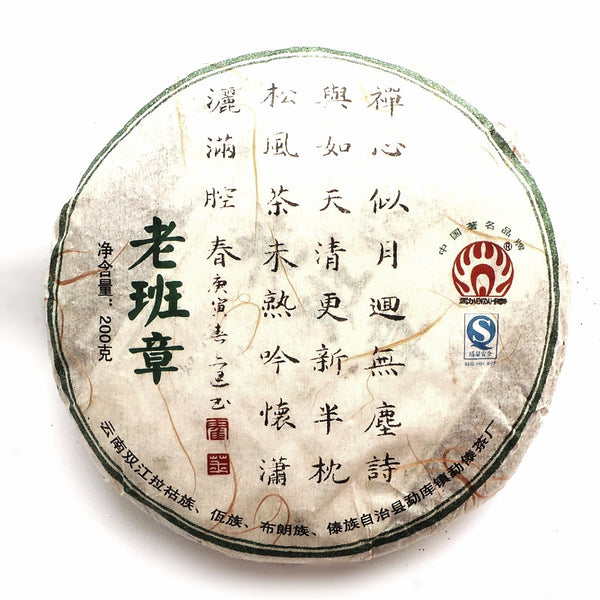 禪心似月迴無塵詩
與如天清更新半枕
松風茶未熟吟懷瀟
灑滿腔春
庚寅春
老班章
净含量：200克
中国著名品牌
®
S
云南双江拉祜族、佤族、布朗族、傣族自治县勐库镇勐傣茶厂